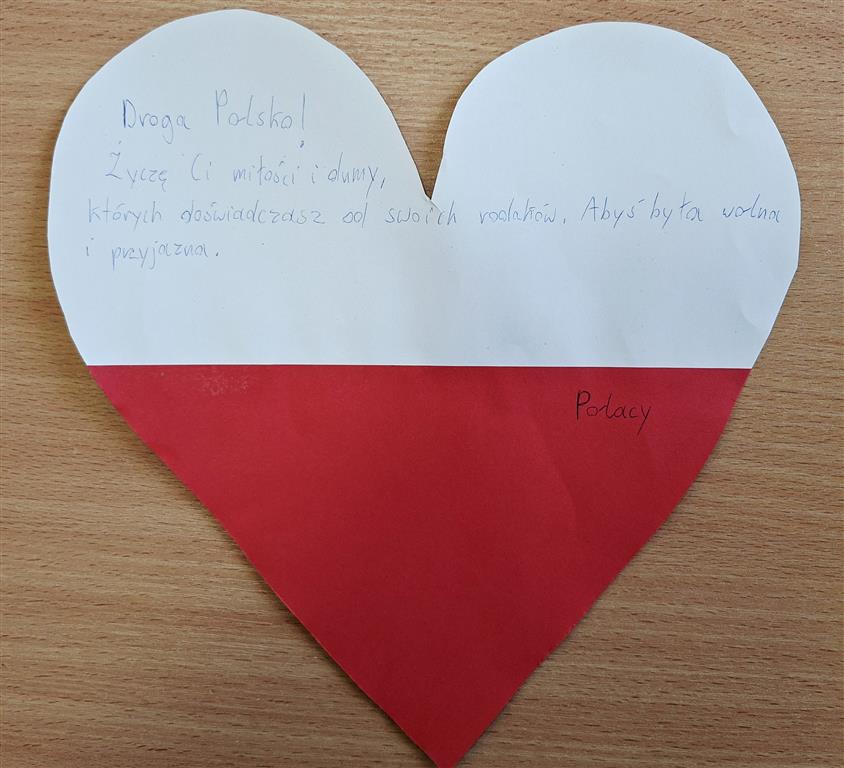 Droga Polsko!
Życzę Ci miłości i dumy,
których doświadczasz od swoich rodaków. Abyś była wolna
i przyjazna.
Polacy